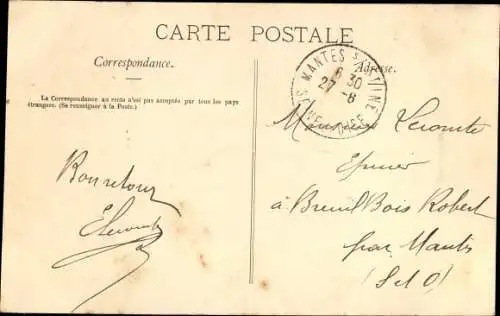 CARTE POSTALE
Correspondance.
Adresse.
La Correspondance au recto n'est pas acceptée par tous les pays
étrangers. (Se renseigner à la Poste.)
MANTES S/SEINE
6 30
27 -8
SEINE-ET-OISE
Bon retour
ELecomte
Monsieur Lecomte
Epicier
à Breuil Bois Robert
par Mantes
(S et O)